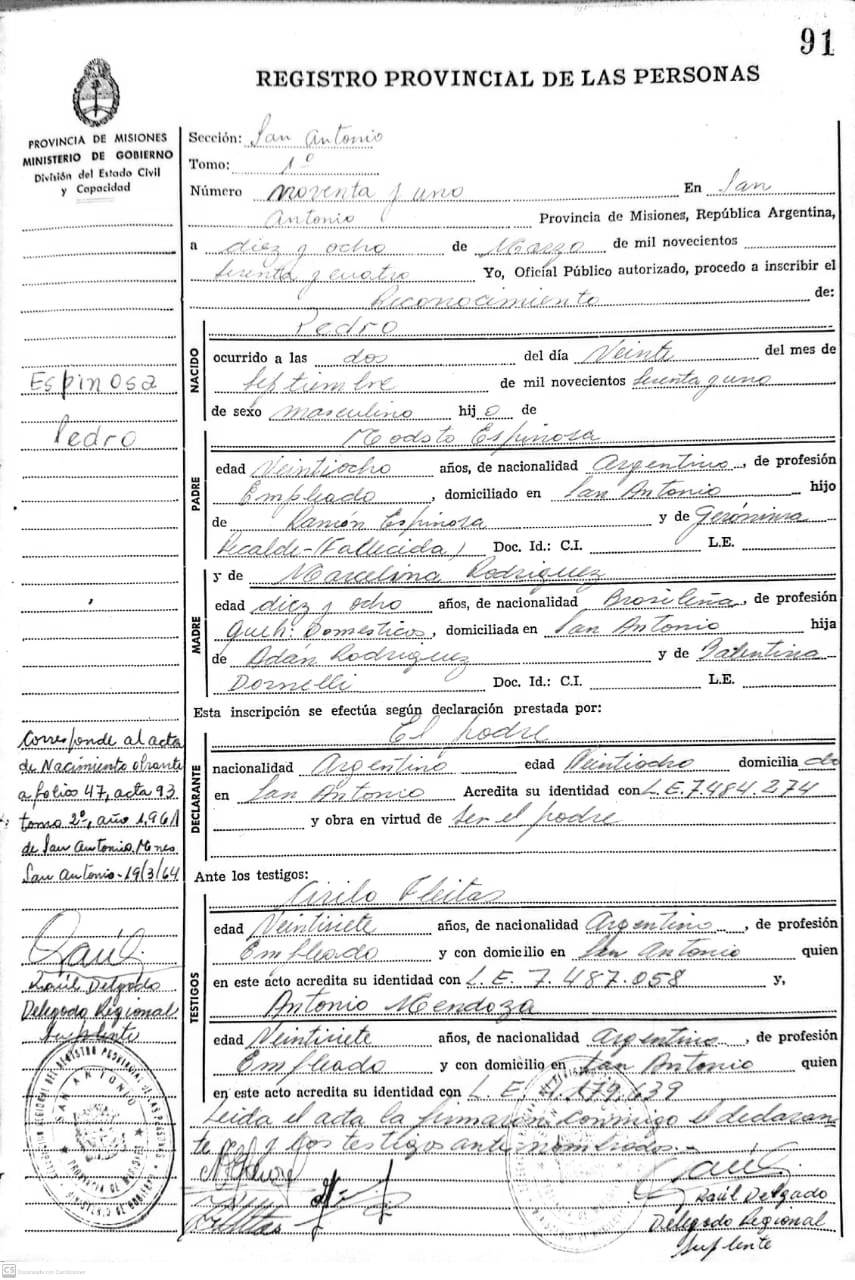 91
REGISTRO PROVINCIAL DE LAS PERSONAS
PROVINCIA DE MISIONES
MINISTERIO DE GOBIERNO
División del Estado Civil
y Capacidad
Espinosa
Pedro
Corresponde al acta
de Nacimiento obrante
a folios 47, acta 93
tomo 2º, año 1,961
de San Antonio, Mnes
San Antonio - 19/3/64
Raúl Delgado
Delegado Regional
Suplente
Sección: San Antonio
Tomo: 1º
Número noventa y uno En San
Antonio Provincia de Misiones, República Argentina,
a diez y ocho de Marzo de mil novecientos
sesenta y cuatro Yo, Oficial Público autorizado, procedo a inscribir el
Reconocimiento de:
NACIDO
Pedro
ocurrido a las dos del día Veinte del mes de
Septiembre de mil novecientos sesenta y uno
de sexo masculino hijo de
PADRE
Modesto Espinosa
edad Veintiocho años, de nacionalidad Argentino, de profesión
Empleado, domiciliado en San Antonio hijo
de Ramón Espinosa y de Gerónima
Recalde-(Fallecida) Doc. Id.: C.I. L.E.
MADRE
y de Marcelina Rodriguez
edad diez y ocho años, de nacionalidad Brasileña, de profesión
Queh: Domesticos, domiciliada en San Antonio hija
de Adán Rodriguez y de Balentina
Dornelli Doc. Id.: C.I. L.E.
Esta inscripción se efectúa según declaración prestada por:
El padre
DECLARANTE
nacionalidad Argentino edad Veintiocho domicilia do
en San Antonio Acredita su identidad con L.E. 7.484.274
y obra en virtud de ser el padre
Ante los testigos:
TESTIGOS
Cirilo Fleitas
edad Veintisiete años, de nacionalidad Argentino, de profesión
Empleado y con domicilio en San Antonio quien
en este acto acredita su identidad con L.E. 7.487.058 y,
Antonio Mendoza
edad Veintisiete años, de nacionalidad Argentino, de profesión
Empleado y con domicilio en San Antonio quien
en este acto acredita su identidad con L.E. 179.639
Leida el acta la firmaron conmigo el declaran
te y los testigos antenombrados.-
Raúl Delgado
Delegado Regional
Suplente
SAN ANTONIO
CS